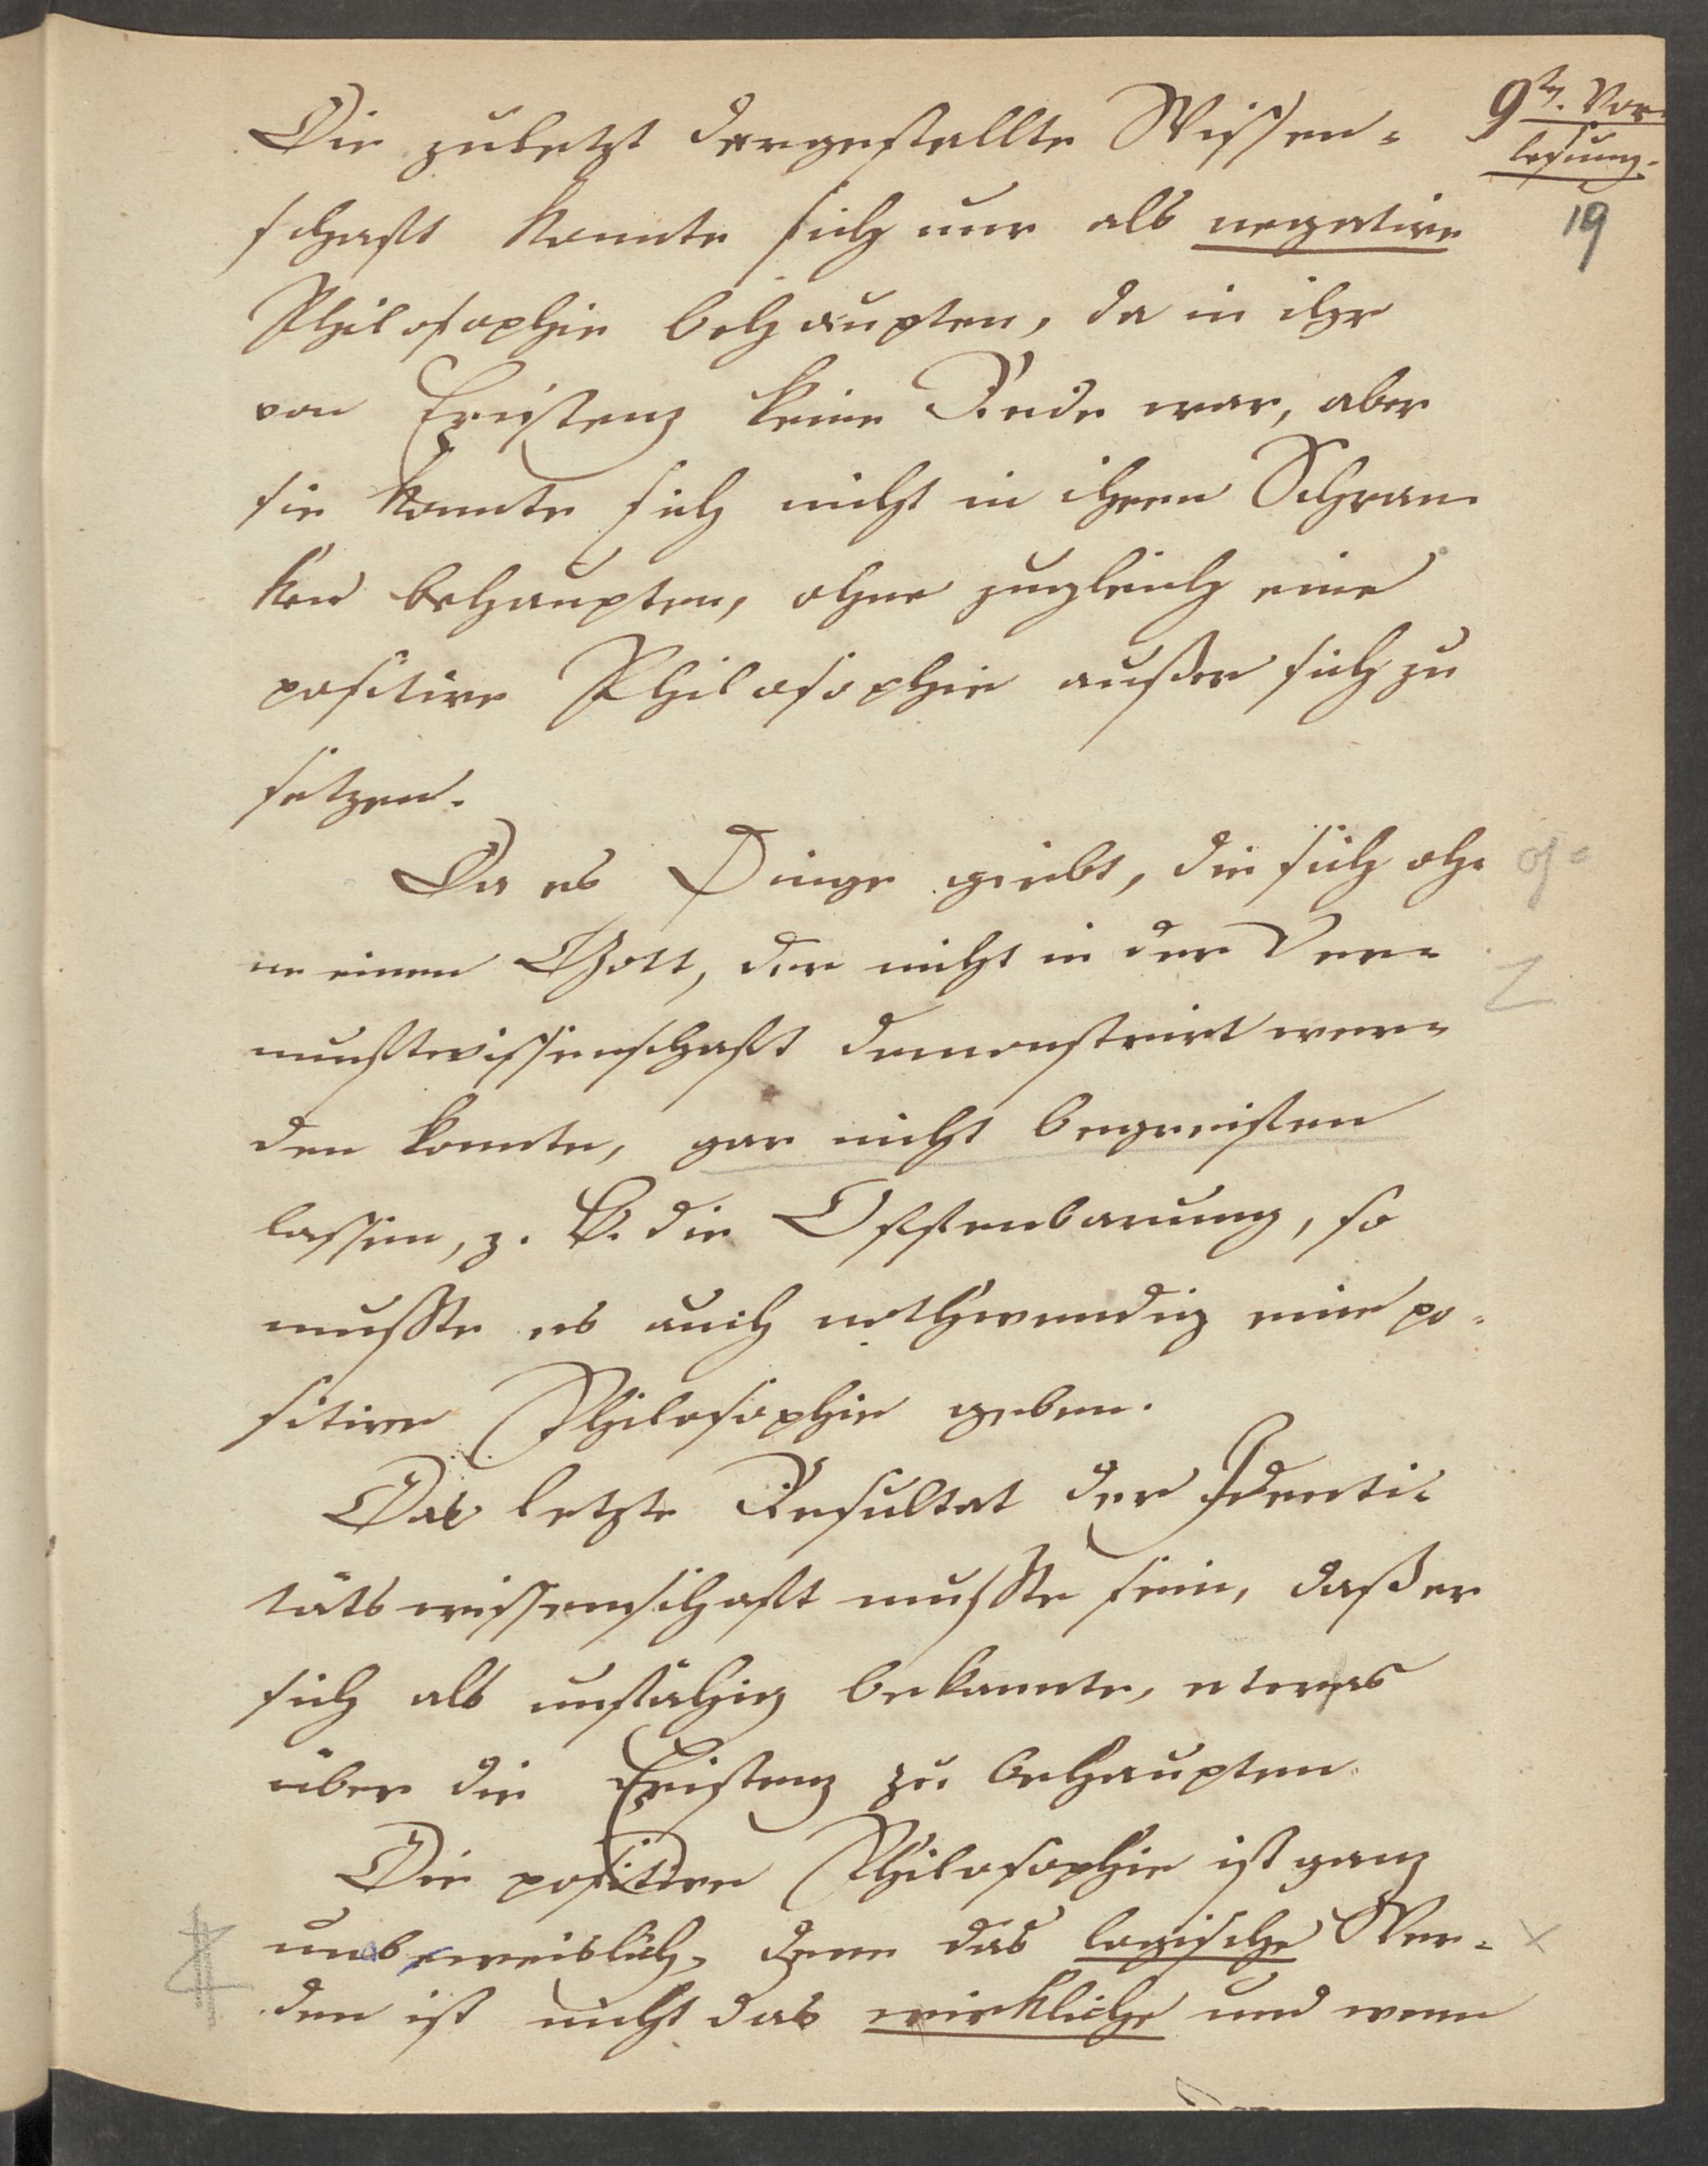 9te. Vor-
lesung.
19
Die zuletzt dargestellte Wissen-
schaft konnte sich nur als negative
Philosophie behaupten, da in ihr
von Existenz keine Rede war, aber
sie konnte sich nicht in ihren Schran-
ken behaupten, ohne zugleich eine
positive Philosophie außer sich zu
setzen.
Da es Dinge giebt, die sich oh-
ne einen Gott, der nicht in der Ver-
nunftwissenschaft demonstrirt wer-
den konnte, gar nicht begreifen
lassen, z. B. die Offenbarung, so
mußte es auch nothwendig eine po-
sitive Philosophie geben.
Das letzte Resultat der Identi-
tätswissenschaft mußte sein, daß er
sich als unfähig bekannte, etwas
über die Existenz zu behaupten.
Die positive Philosophie ist ganz
unabweislich, denn das logische Wer-
den ist nicht das wirkliche und wenn